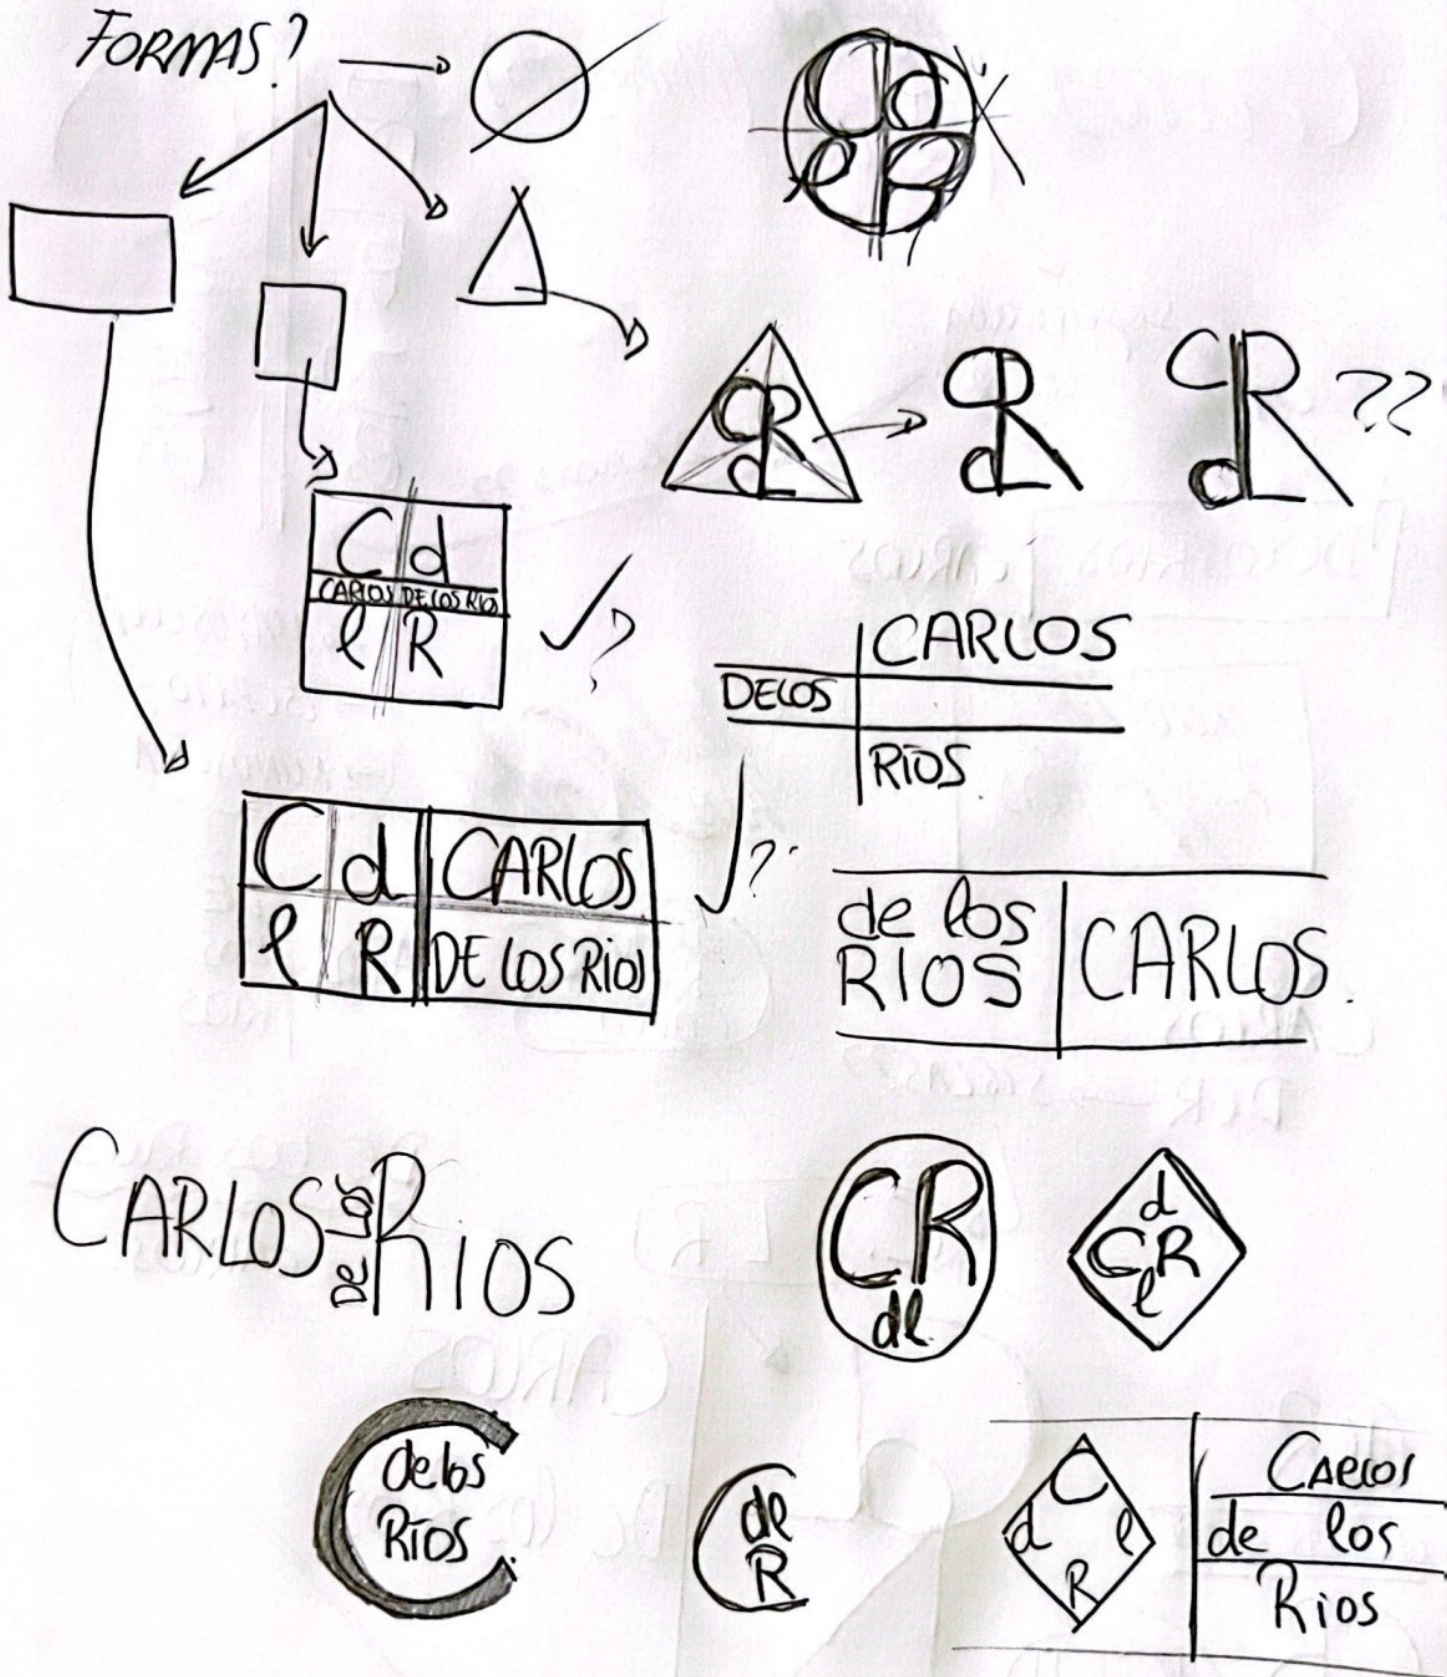 FORMAS?
C d
l R
CR
d
CR
dL
CR ??
dL
C d
CARLOS DE LOS RIOS
l R
?
CARLOS
DELOS
RIOS
C d CARLOS
l R DE LOS RIOS
?
de los
RIOS
CARLOS.
CARLOS DE LOS RIOS
CR
de
d
CR
l
C delos
Rios
C de
R
C
d l
R
CARLOS
de los
Rios